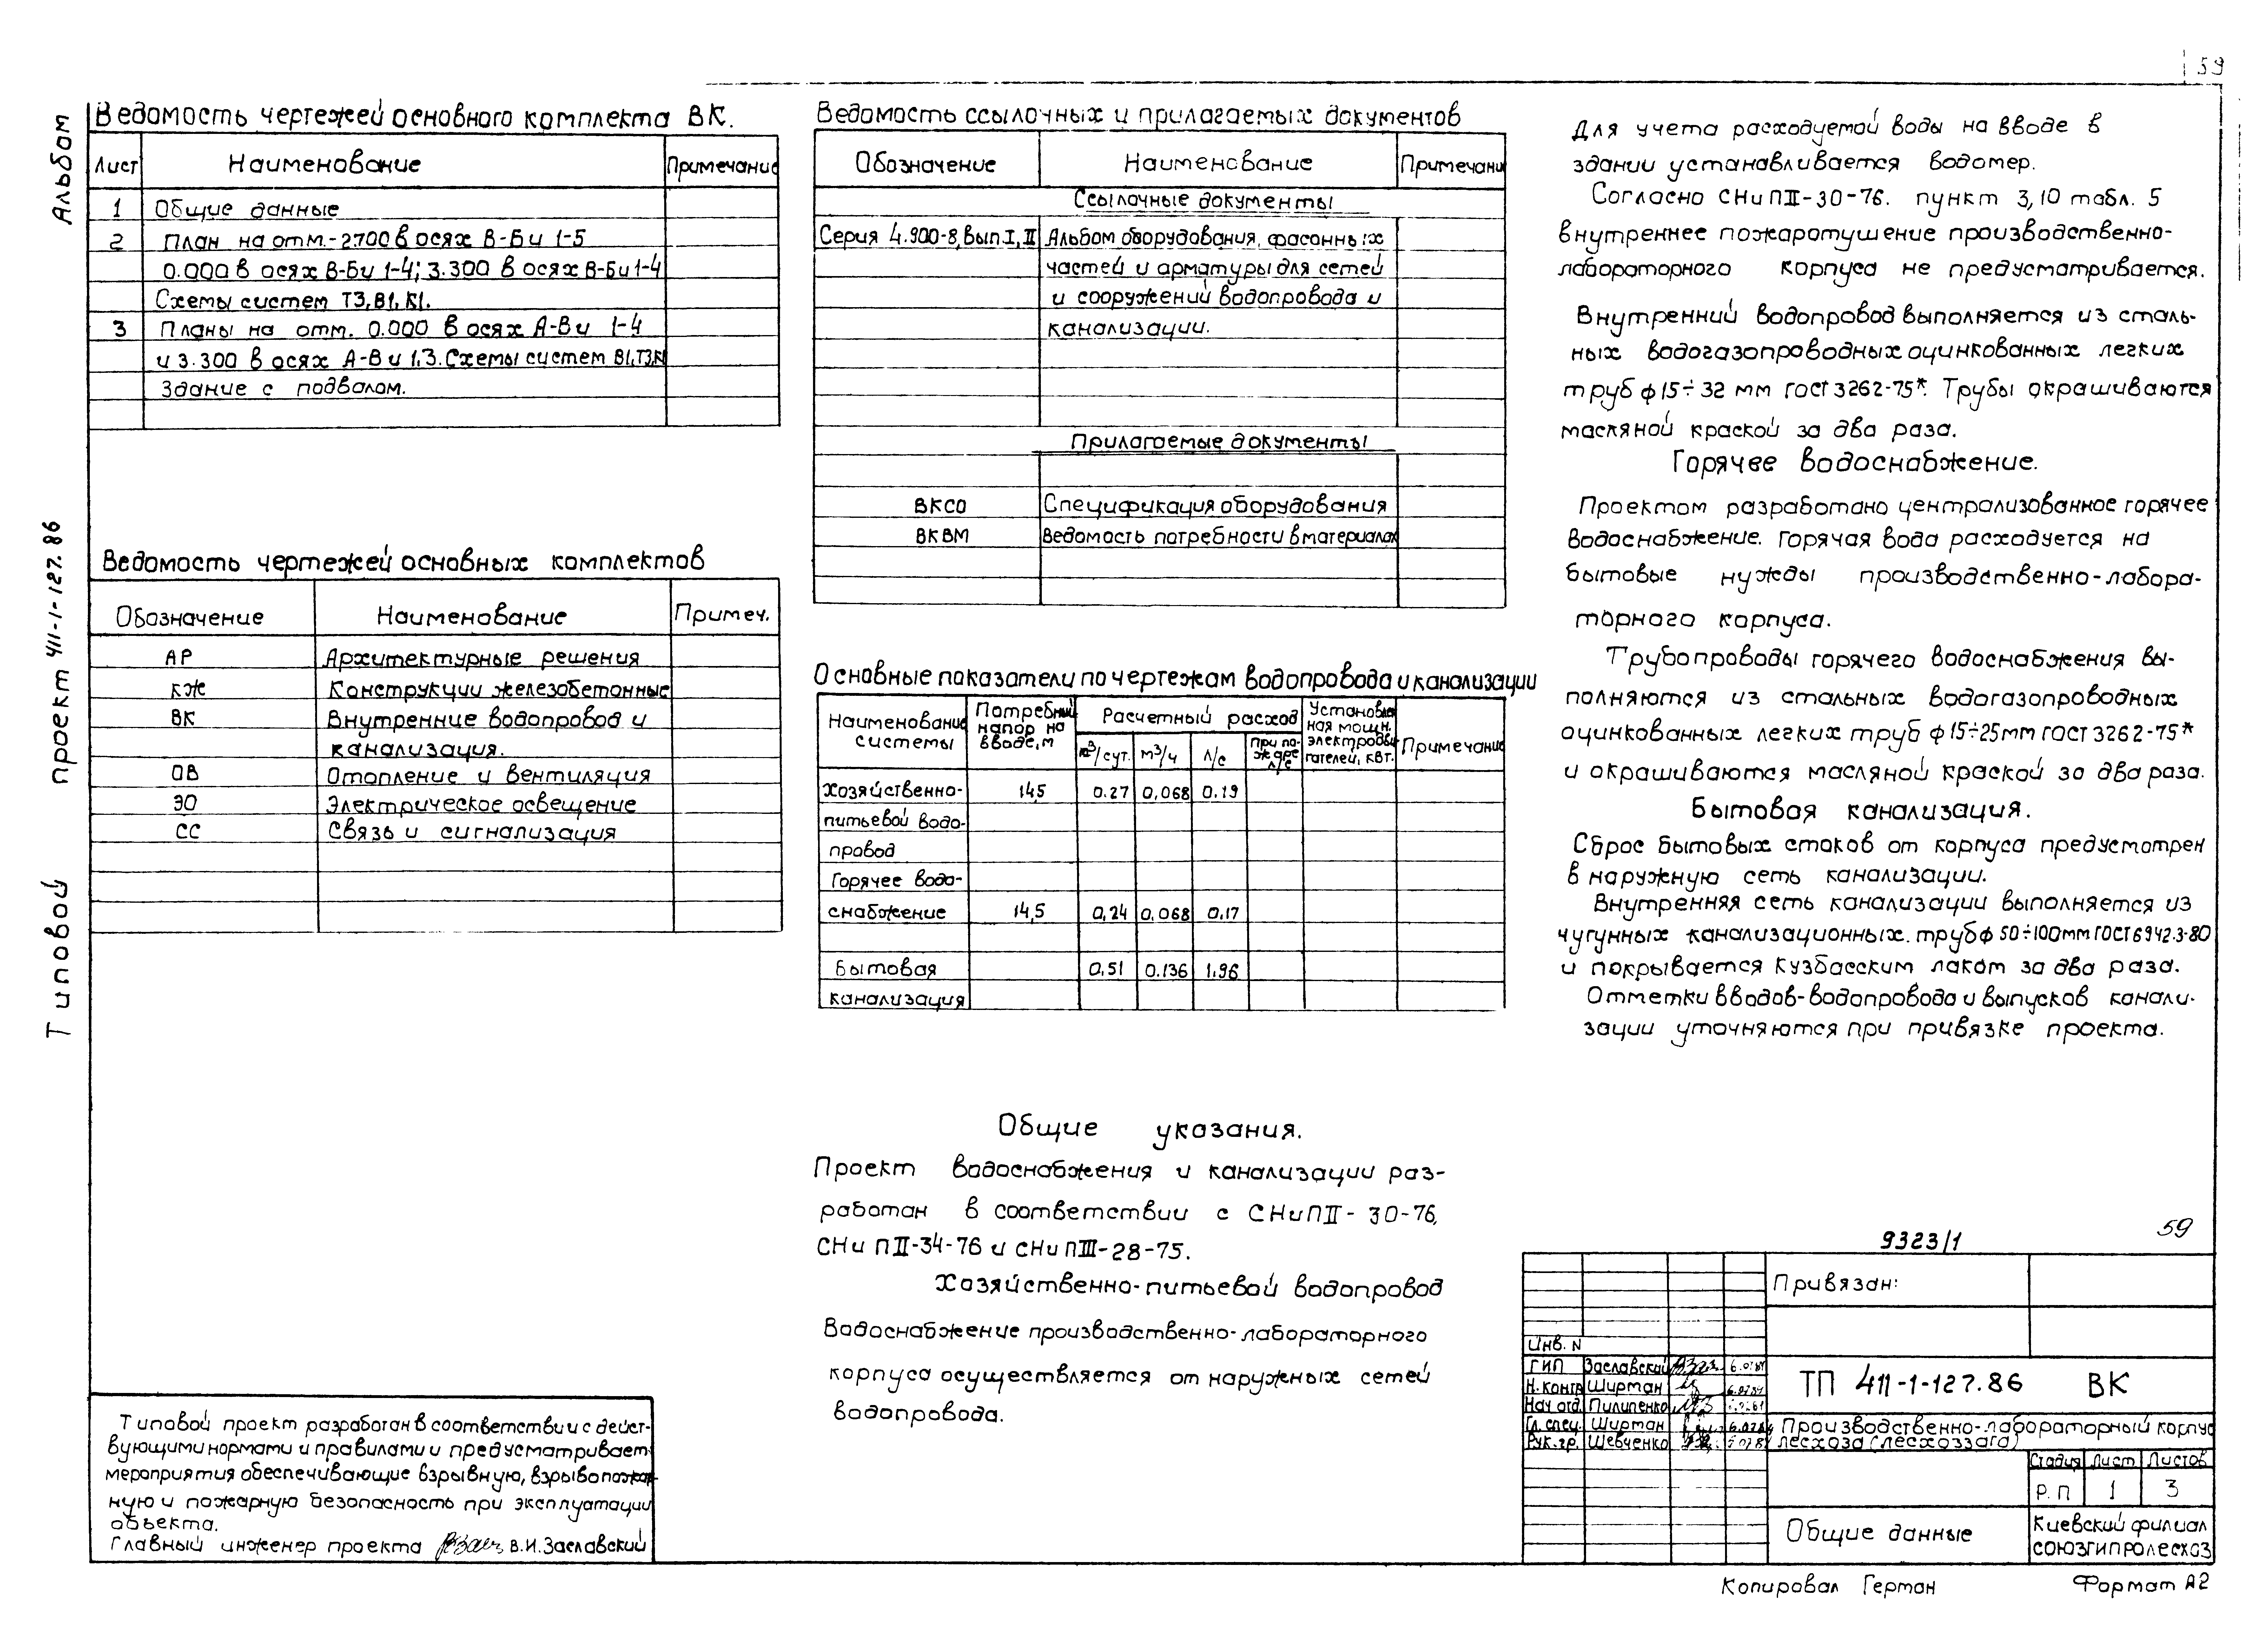 59
Альбом
Типовой проект 411-1-127.86
Ведомость чертежей основного комплекта ВК.
Лист Наименование Примечание
1 Общие данные
2 План на отм.-2.700 в осях В-Б и 1-5
0.000 в осях В-Б и 1-4; 3.300 в осях В-Б и 1-4
Схемы систем Т3, В1, К1.
3 Планы на отм. 0.000 в осях А-В и 1-4
и 3.300 в осях А-В и 1,3. Схемы систем В1, Т3, К1
Здание с подвалом.
Ведомость чертежей основных комплектов
Обозначение Наименование Примеч.
АР Архитектурные решения
КЖ Конструкции железобетонные
ВК Внутренние водопровод и
канализация.
ОВ Отопление и вентиляция
ЭО Электрическое освещение
СС Связь и сигнализация
Типовой проект разработан в соответствии с дейст-
вующими нормами и правилами и предусматривает
мероприятия обеспечивающие взрывную, взрывопожар-
ную и пожарную безопасность при эксплуатации
объекта.
Главный инженер проекта В.И.Заславский
Ведомость ссылочных и прилагаемых документов
Обозначение Наименование Примечани
Ссылочные документы
Серия 4.900-8, вып.I, II Альбом оборудования, фасонных
частей и арматуры для сетей
и сооружений водопровода и
канализации.
Прилагаемые документы
ВКСО Спецификация оборудования
ВКВМ Ведомость потребности в материалах
Основные показатели по чертежам водопровода и канализации
Наименование системы Потребный напор на вводе, м Расчетный расход Установленная мощн. электродвигателей, квт. Примечание
м³/сут. м³/ч л/с При пожаре л/с
Хозяйственно- 14,5 0.27 0,068 0.19
питьевой водо-
провод
Горячее водо-
снабжение 14,5 0,24 0,068 0,17
Бытовая 0,51 0.136 1.96
канализация
Общие указания.
Проект водоснабжения и канализации раз-
работан в соответствии с СНиПII-30-76,
СНиПII-34-76 и СНиПIII-28-75.
Хозяйственно-питьевой водопровод
Водоснабжение производственно-лабораторного
корпуса осуществляется от наружных сетей
водопровода.
Для учета расходуемой воды на вводе в
здании устанавливается водомер.
Согласно СНиПII-30-76. пункт 3,10 табл. 5
внутреннее пожаротушение производственно-
лабораторного корпуса не предусматривается.
Внутренний водопровод выполняется из сталь-
ных водогазопроводных оцинкованных легких
труб ф15÷32 мм ГОСТ 3262-75*. Трубы окрашиваются
масляной краской за два раза.
Горячее водоснабжение.
Проектом разработано централизованное горячее
водоснабжение. Горячая вода расходуется на
бытовые нужды производственно-лабора-
торного корпуса.
Трубопроводы горячего водоснабжения вы-
полняются из стальных водогазопроводных
оцинкованных легких труб ф15÷25мм ГОСТ 3262-75*
и окрашиваются масляной краской за два раза.
Бытовая канализация.
Сброс бытовых стоков от корпуса предусмотрен
в наружную сеть канализации.
Внутренняя сеть канализации выполняется из
чугунных канализационных. труб ф 50÷100мм ГОСТ 6942.3-80
и покрывается Кузбасским лаком за два раза.
Отметки вводов-водопровода и выпусков канали-
зации уточняются при привязке проекта.
9323/1 59
Привязан:
Инв. N
ГИП Заславский
Н. контр Ширман
Нач отд. Пилипенко
Гл. спец. Ширман
Рук. гр. Шевченко
ТП 411-1-127.86 ВК
Производственно-лабораторный корпус
лесхоза (лесхоззага)
Стадия Лист Листов
Р.П 1 3
Общие данные
Киевский филиал
СОЮЗГИПРОЛЕСХОЗ
Копировал Герман Формат А2